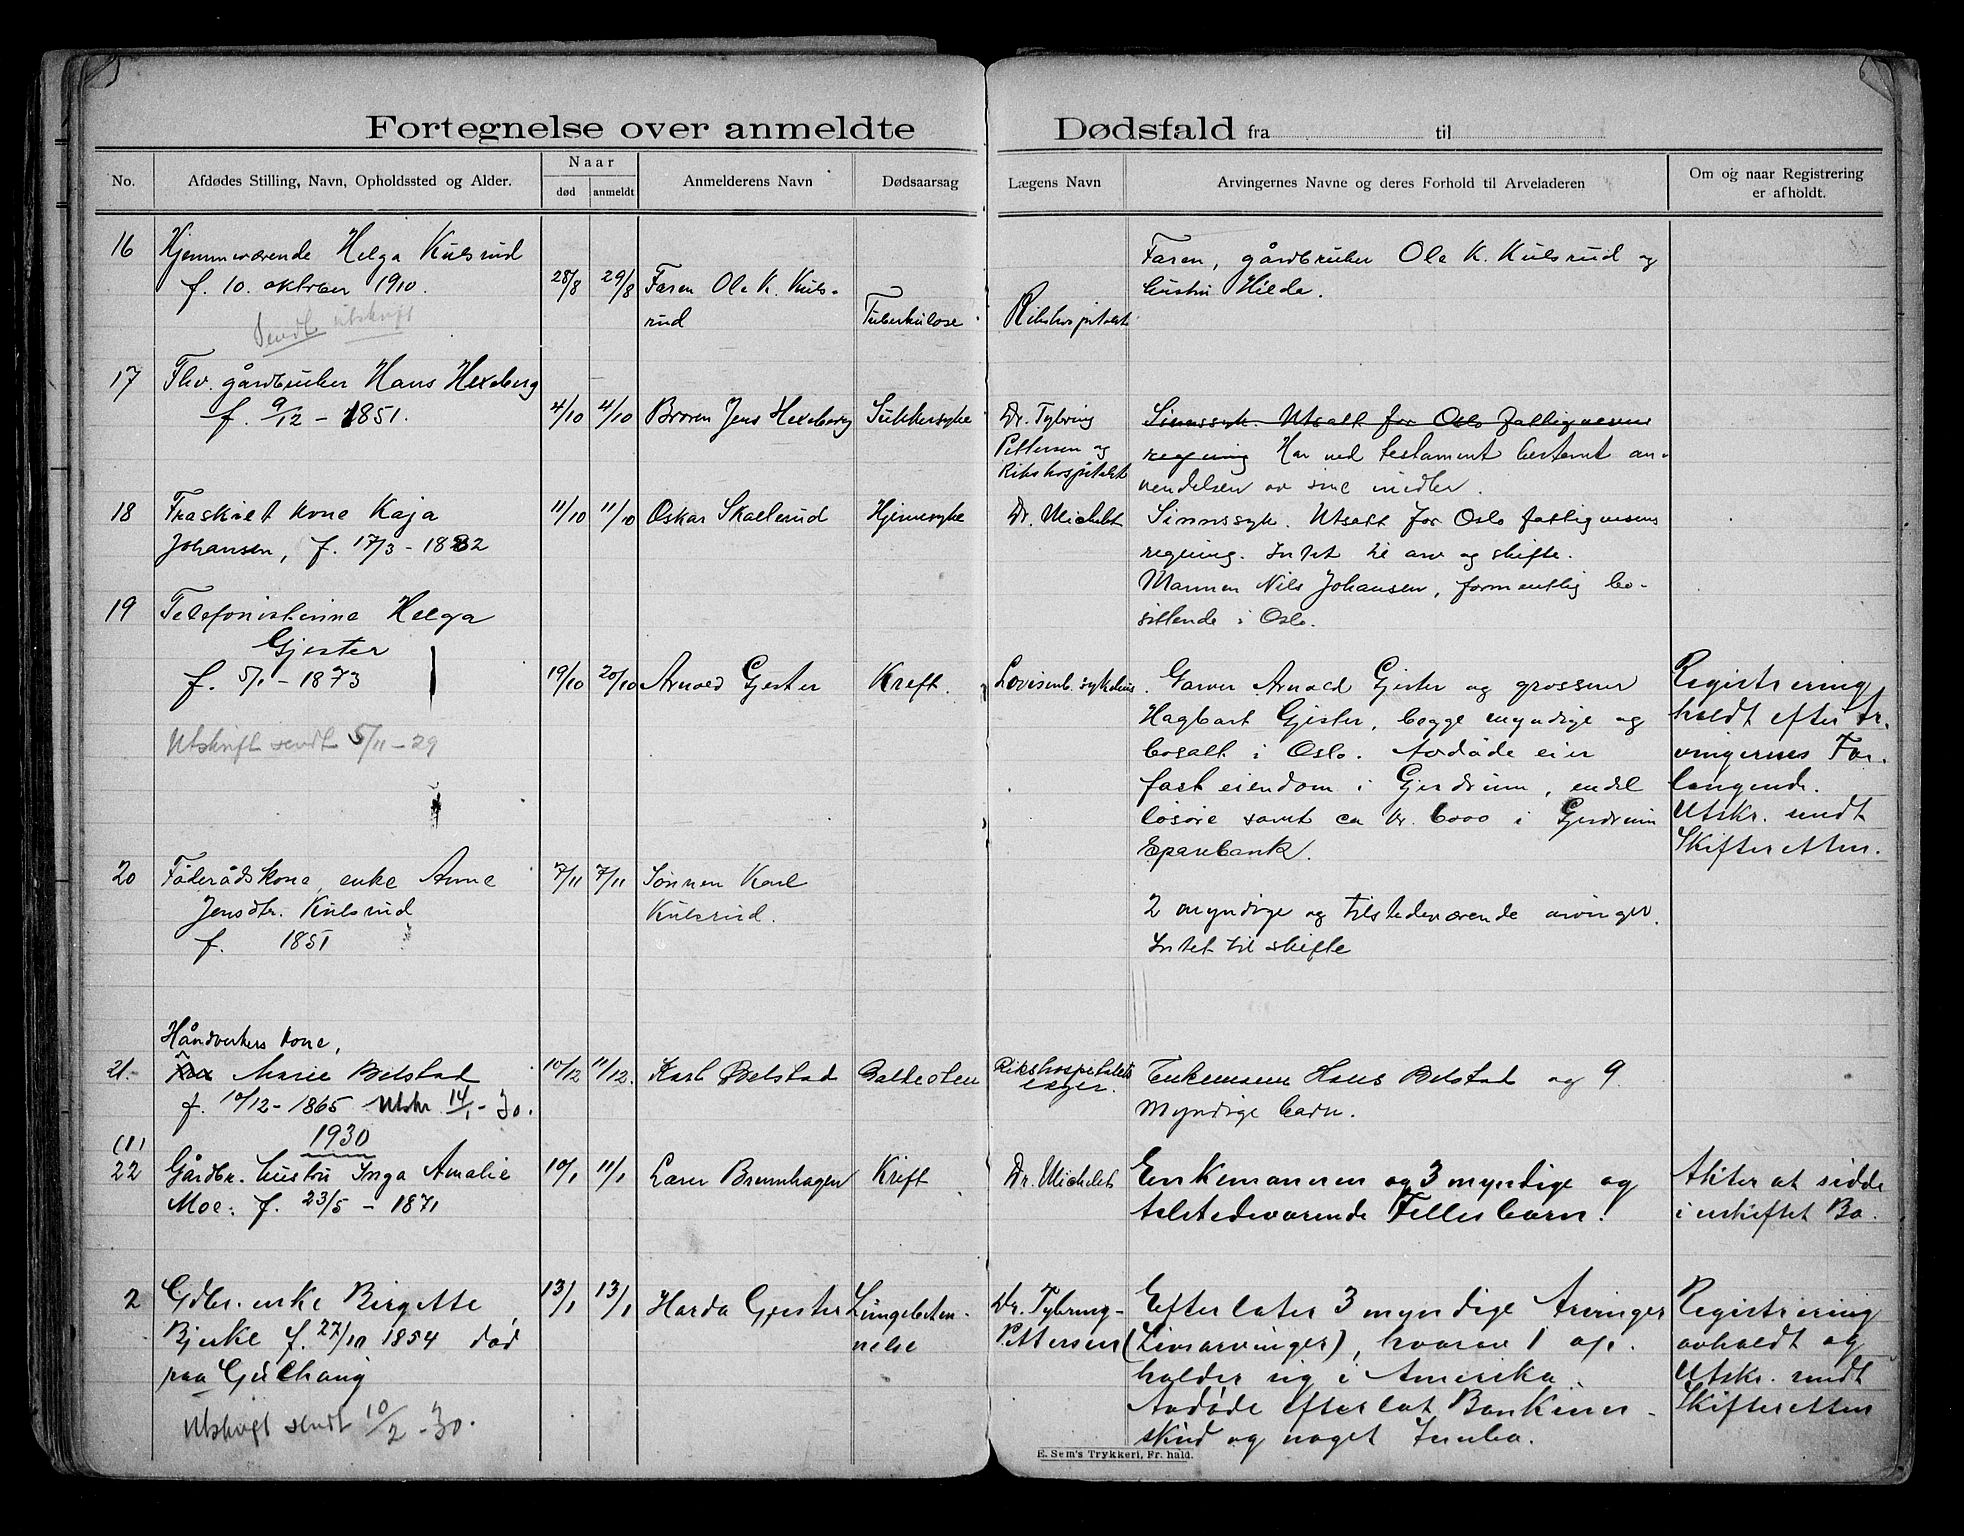 Fortegnelse over anmeldte Dødsfald fra til
No.
Afdødes Stilling, Navn, Opholdssted og Alder.
Naar
død
anmeldt
Anmelderens Navn
Dødsaarsag
Lægens Navn
Arvingernes Navne og deres Forhold til Arveladeren
Om og naar Registrering
er afholdt.
16
Hjemmeværende Helga Kulsrud
f. 10. oktober 1910.
Sendt utskrift
28/8
29/8
Faren Ole K. Kuls-
rud
Tuberkulose
Rikshospitalet
Faren, gårdbruker Ole K. Kulsrud og
hustru Hilda.
17
Fhv. gårdbruker Hans Hexeberg
f. 9/12 - 1851.
4/10
4/10
Broren Jens Hexeberg
Sukkersyke
Dr. Tybring
Pettersen og
Rikshospitalet
Sinnssyk. Utsatt for Oslo fattigvesens
regning Har ved testament bestemt an-
vendelsen av sine midler.
18
Fraskilt kone Kaja
Johansen, f. 17/3 - 1882
11/10
11/10
Oskar Skallerud
Hjernesyke
Dr. Michelet
Sinnssyk. Utsatt for Oslo fattigvesens
regning. Intet til arv og skifte.
Mannen Nils Johansen, formentlig bo-
sittende i Oslo.
19
Telefonistinne Helga
Gjester
f. 5/1 - 1873
Utskrift sendt 5/11 - 29
19/10
20/10
Arnold Gjester
Kreft.
Lovisenb. sykehus.
Garver Arnold Gjester og grosserer
Hagbart Gjester, begge myndige og
bosatt i Oslo. Avdøde eier
fast eiendom i Gjerdrum, endel
løsøre samt ca kr. 6000 i Gjerdrum
Sparebank.
Registrering
holdt efter Ar-
vingernes For-
langende.
Utskr. sendt
Skifteretten.
20
Føderådskone, enke Anne
Jensdtr. Kulsrud
f. 1851
7/11
7/11
Sønnen Karl
Kulsrud.
2 myndige og tilstedeværende arvinger.
Intet til skifte
21.
Håndverkers kone,
Marie Belstad
f. 10/12 - 1865 Utskr 14/1 - 30.
10/12
11/12.
Karl Bølstad
Galdesten
Rikshospitalets
læger.
Enkemann Hans Bølstad og 9
myndige barn.
1930
(1)
22
Gårdbr. hustru Inga Amalie
Moe: f. 23/5 - 1871
10/1
11/1
Lærer Brennhagen
Kreft
Dr. Michelet
Enkemannen og 3 myndige og
tilstedeværende Fellesbarn!
Akter at sidde
i uskiftet Bo.
2
Gdbr. enke Birgitte
Bjerke f. 27/10 1854 død
paa Gjelhaug
Utskrift sendt 10/2 - 30.
13/1
13/1
Harda Gjester
Lungebeten-
nelse
Dr. Tybring-
Pettersen
Efterlater 3 myndige Arvinger
(Livsarvinger), hvorav 1 op-
holder sig i Amerika.
Avdøde efterlot Bankinn-
skud og noget Innbo.
Registrering
avholdt og
Utskr. sendt
Skifteretten
E. Sem's Trykkeri, Fr. hald.